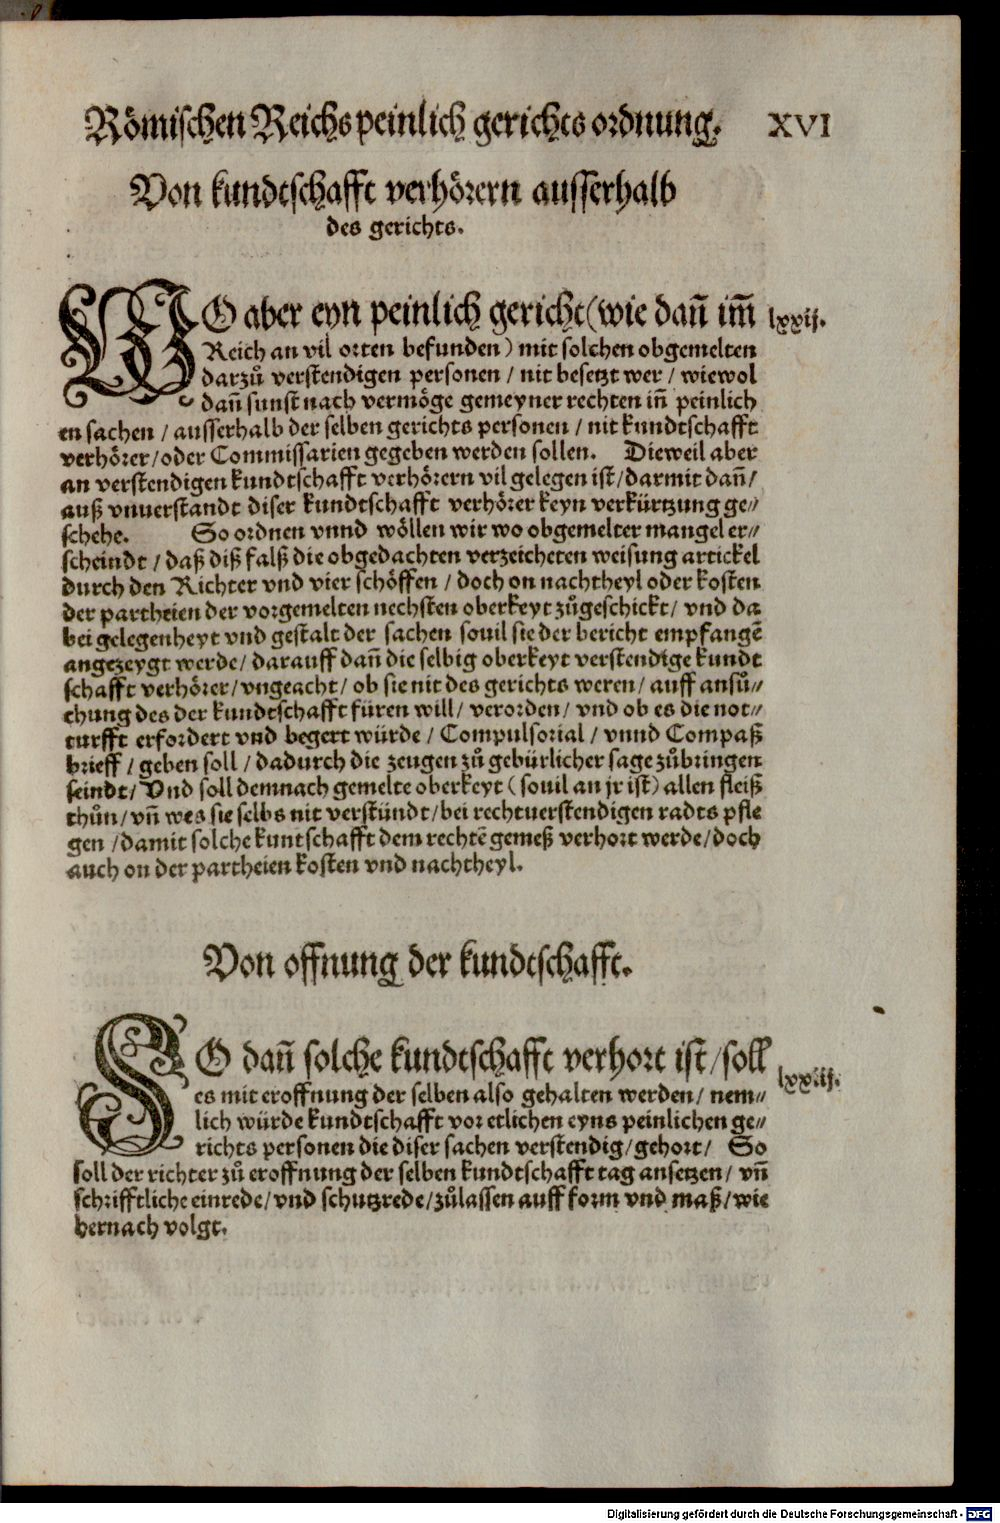 Römischen Reichs peinlich gerichts ordnung. XVI
Von kundtschafft verhörern ausserhalb
des gerichts.
WO aber eyn peinlich gericht (wie dañ im̃ lxxij.
Reich an vil orten befunden) mit solchen obgemelten
darzů verstendigen personen / nit besetzt wer / wiewol
dañ sunst nach vermöge gemeyner rechten iñ peinlich
en sachen / ausserhalb der selben gerichts personen / nit kundtschafft
verhörer / oder Commissarien gegeben werden sollen. Dieweil aber
an verstendigen kundtschafft verhörern vil gelegen ist / darmit dañ /
auß vnuerstandt diser kundtschafft verhörer keyn verkürtzung ge⸗
schehe. So ordnen vnnd wöllen wir wo obgemelter mangel er⸗
scheindt / daß diß falß die obgedachten verzeicheten weisung artickel
durch den Richter vnd vier schöffen / doch on nachtheyl oder kosten
der partheien der vorgemelten nechsten oberkeyt zůgeschickt / vnd da
bei gelegenheyt vnd gestalt der sachen souil sie der bericht empfangẽ
angezeygt werde / darauff dañ die selbig oberkeyt verstendige kundt
schafft verhörer / vngeacht / ob sie nit des gerichts weren / auff ansů⸗
chung des der kundtschafft füren will / verorden / vnd ob es die not⸗
turfft erfordert vnd begert würde / Compulsorial / vnnd Compaß
brieff / geben soll / dadurch die zeugen zů gebürlicher sage zůbringen
seindt / Vnd soll demnach gemelte oberkeyt (souil an jr ist) allen fleiß
thůn / vñ wes sie selbs nit verstündt / bei rechtuerstendigen radts pfle
gen / damit solche kuntschafft dem rechtẽ gemeß verhort werde / doch
auch on der partheien kosten vnd nachtheyl.
Von offnung der kundtschafft.
SO dañ solche kundtschafft verhort ist / soll lxxiij.
es mit eroffnung der selben also gehalten werden / nem⸗
lich würde kundtschafft vor etlichen eyns peinlichen ge⸗
richts personen die diser sachen verstendig / gehort / So
soll der richter zů eroffnung der selben kundtschafft tag ansetzen / vñ
schrifftliche einrede / vnd schutzrede / zůlassen auff form vnd maß / wie
hernach volgt.
Digitalisierung gefördert durch die Deutsche Forschungsgemeinschaft - DFG